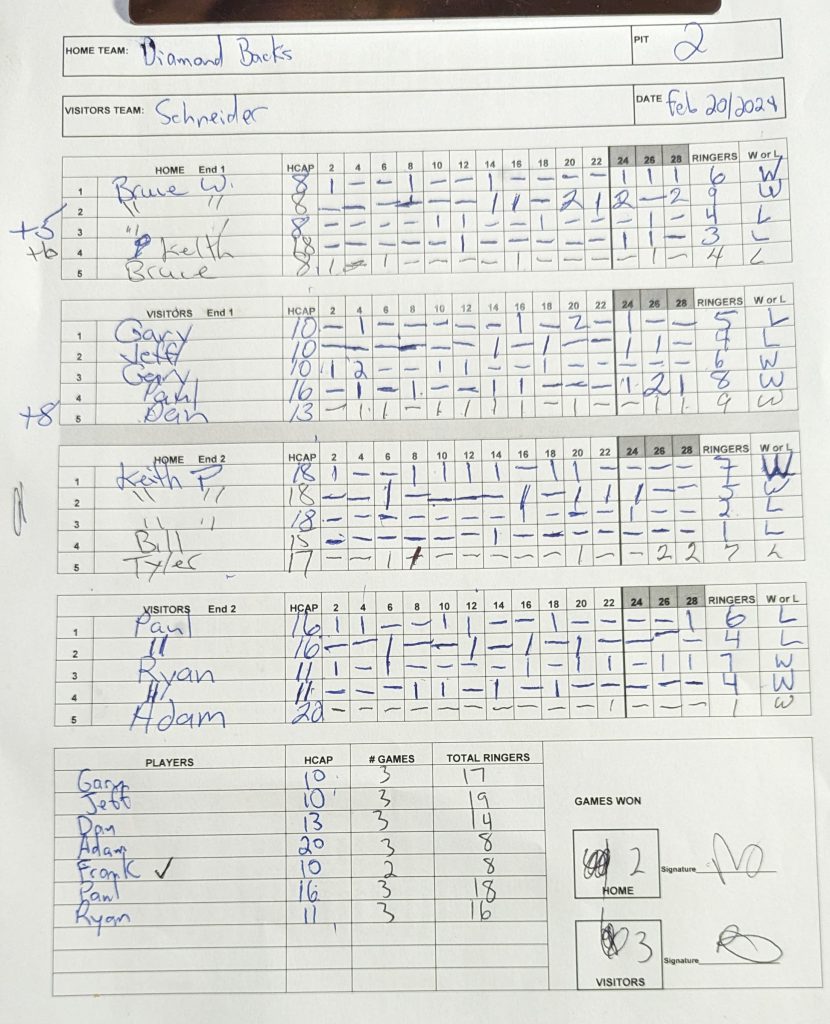 HOME TEAM: Diamond Backs PIT 2
VISITORS TEAM: Schneider DATE Feb 20/2024
HOME End 1 HCAP 2 4 6 8 10 12 14 16 18 20 22 24 26 28 RINGERS W or L
1 Bruce W. 8 1 - - 1 - - 1 - - - - 1 1 1 6 W
2 " " 8 - - - - - - 1 1 - 2 1 2 - 2 9 W
+5 3 " " 8 - - - - 1 1 - - 1 - - - 1 - 4 L
+6 4 P Keith 18 - - - - - 1 - - - - - 1 1 - 3 L
5 Bruce 8 1 - 1 - - - - 1 - - - - 1 - 4 L
VISITORS End 1 HCAP 2 4 6 8 10 12 14 16 18 20 22 24 26 28 RINGERS W or L
1 Gary 10 - 1 - - - - - 1 - 2 - 1 - - 5 L
2 Jeff 10 - - - - - - 1 - 1 - - 1 1 - 7 L
3 Gary 10 1 2 - - 1 1 - - 1 - - - - - 6 W
4 Paul 16 - 1 - 1 - - 1 1 - - - 1 2 1 8 W
+8 5 Dan 13 - 1 1 - 1 1 1 1 - 1 - - 1 1 9 W
HOME End 2 HCAP 2 4 6 8 10 12 14 16 18 20 22 24 26 28 RINGERS W or L
1 Keith P 18 1 - - 1 1 1 1 - 1 1 - - - - 7 W
2 " " 18 - - 1 - - - - 1 - 1 1 1 - - 5 W
3 " " 18 - - - - - - - 1 - - - 1 - - 2 L
4 Bill 15 - - - - - - 1 - - - - - - - 1 L
5 Tyler 17 - - 1 1 - - - - - 1 - - 2 2 7 L
VISITORS End 2 HCAP 2 4 6 8 10 12 14 16 18 20 22 24 26 28 RINGERS W or L
1 Paul 16 1 1 - - 1 1 - - 1 - - - - 1 6 L
2 " 16 - - 1 - - 1 - 1 - 1 - - - - 4 L
3 Ryan 11 1 - 1 - - - 1 - 1 - 1 - 1 1 7 W
4 " 11 - - - 1 1 - 1 - 1 - - - - - 4 W
5 Adam 20 - - - - - - - - - - 1 - - - 1 W
PLAYERS HCAP # GAMES TOTAL RINGERS
Gary 10 3 17
Jeff 10 3 19
Dan 13 3 14
Adam 20 3 8
Frank ✓ 10 2 8
Paul 16 3 18
Ryan 11 3 16
GAMES WON
2
HOME
Signature
3
VISITORS
Signature